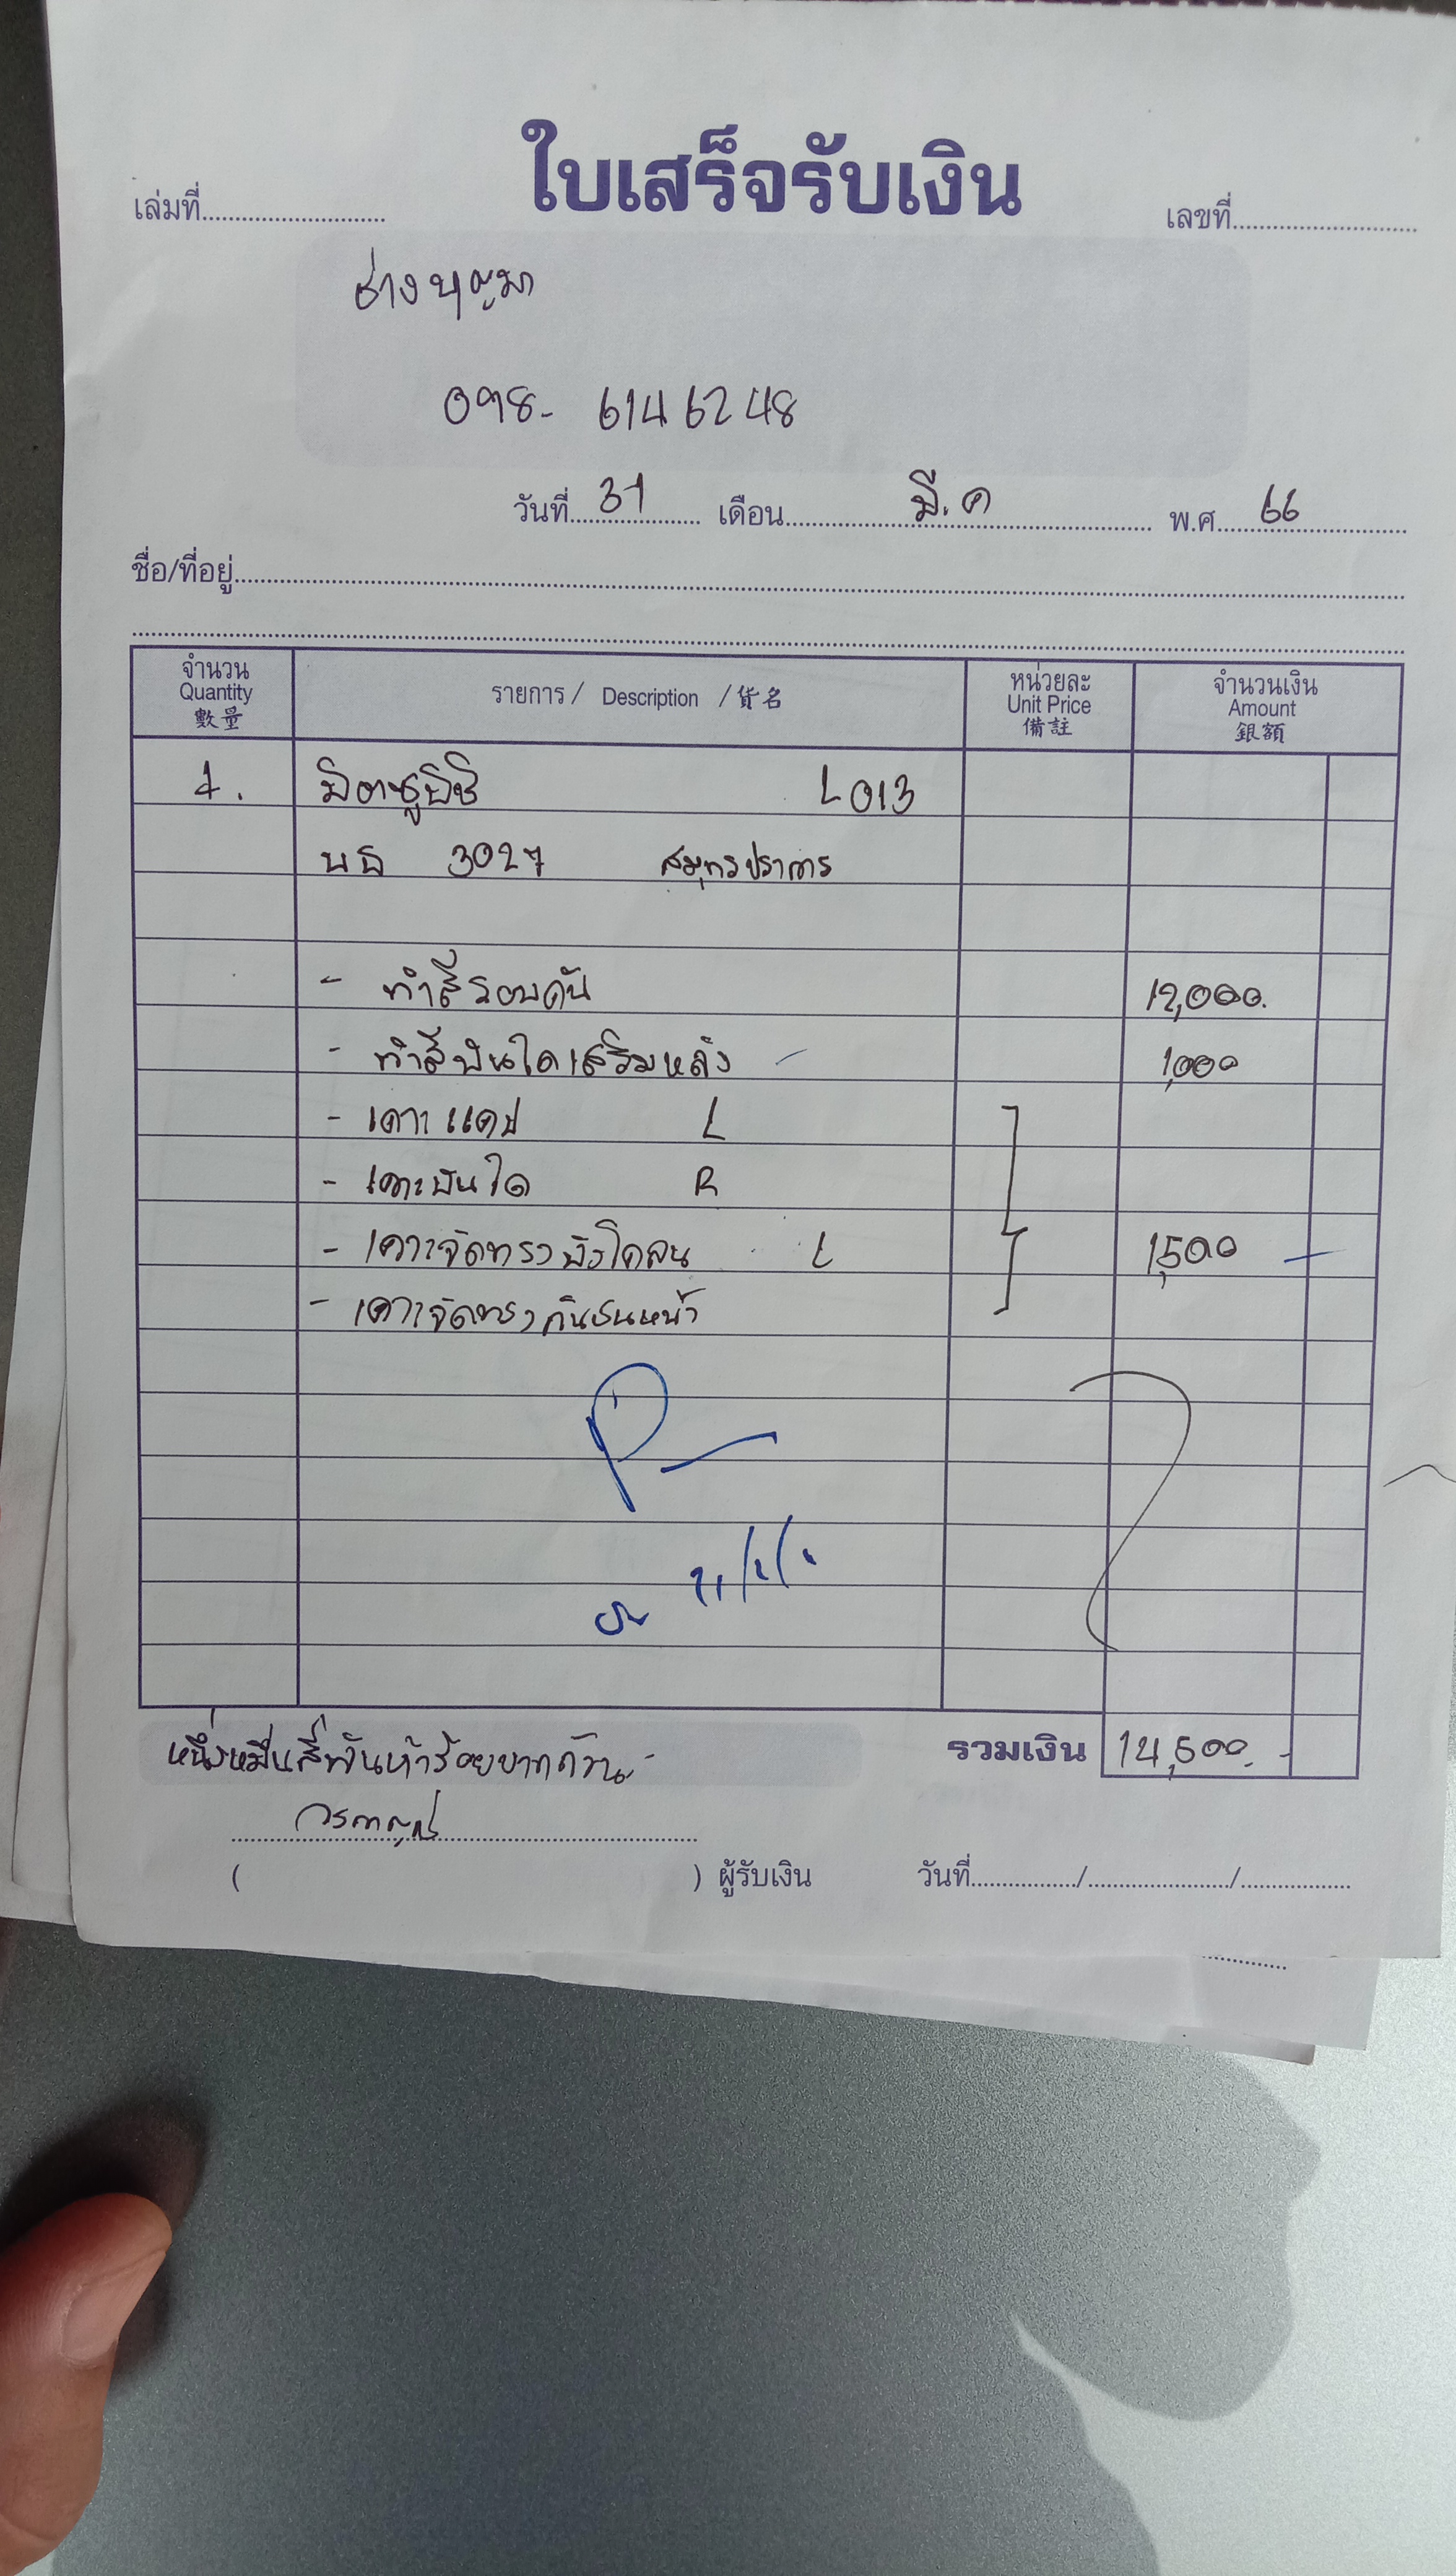 ใบเสร็จรับเงิน
เล่มที่ เลขที่
ช่าง
098- 6146248
วันที่ 31 เดือน มี.ค พ.ศ. 66
ชื่อ/ที่อยู่
จำนวน Quantity 數量 รายการ / Description / 貨名 หน่วยละ Unit Price 備註 จำนวนเงิน Amount 銀額
1. มิตซูบิชิ L013
3027 สมุทรปราการ
- ทำสีรอบคัน 12,000.
- ทำสีบันไดเสริมหลัง 1,000
- เคาะแคป L
- เคาะบันได R
- เคาะจัดทรงบังโคลน L 1,500 -
- เคาะจัดทรงกันชนหน้า
หนึ่งหมื่นสี่พันห้าร้อยบาทถ้วน- รวมเงิน 14,500.-
( ) ผู้รับเงิน วันที่ / /